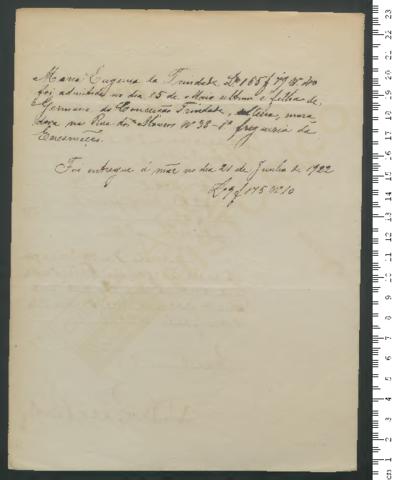 Maria Eugenia da Trindade Lº 165 f 79 Nº 40
foi admitida no dia 15 de Maio ultimo e filha de
Germana da Conceição Trindade, solteira, mora
dora na Rua dos Mouros Nº 38-1º freguezia da
Encarnação.
Foi entregue á mãe no dia 21 de Junho de 1922
Lº 9 f 175 Nº 10